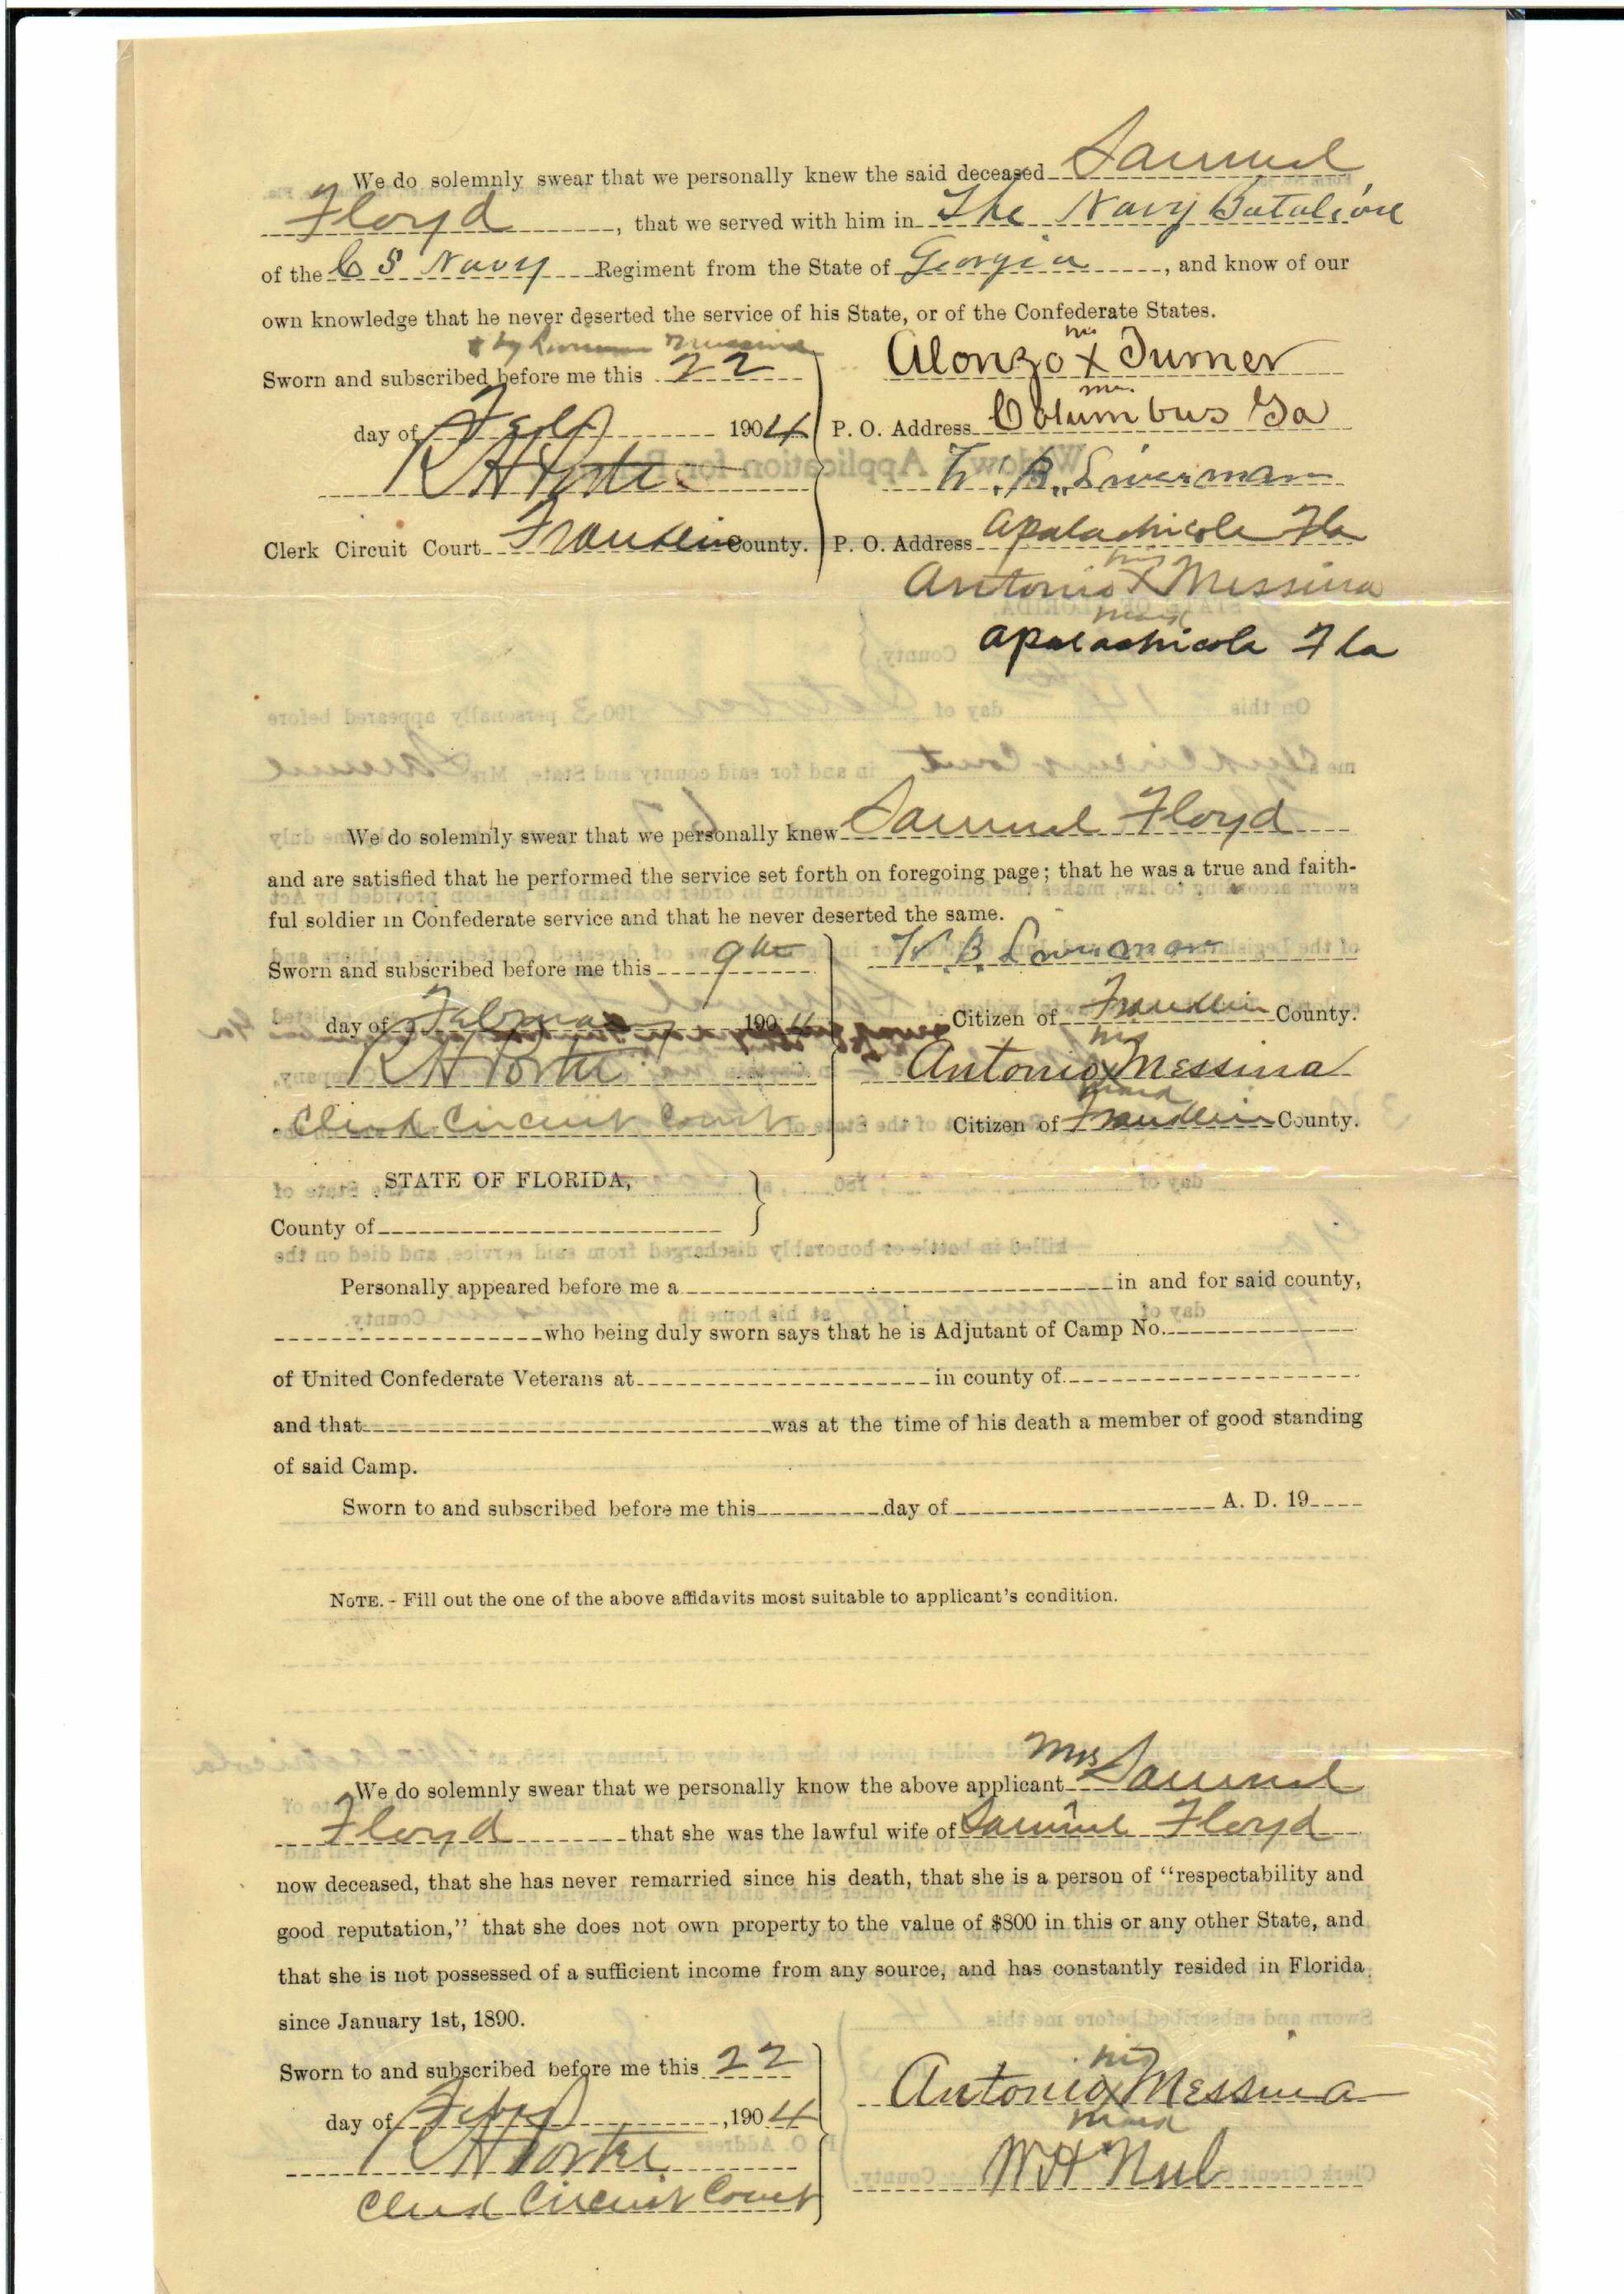 We do solemnly swear that we personally knew the said deceased Samuel
Floyd, that we served with him in The Navy Batalion
of the C S Navy Regiment from the State of Georgia, and know of our
own knowledge that he never deserted the service of his State, or of the Confederate States.
Sworn and subscribed before me this 22
his
Alonzo X Turner
day of 1904
P. O. Address Columbus Ga
R H Porter
W. B.
Clerk Circuit Court Franklin County.
P. O. Address Apalachicola Fla
his
Antonio X Messina
mark
Apalachicola Fla
We do solemnly swear that we personally knew Samuel Floyd
and are satisfied that he performed the service set forth on foregoing page; that he was a true and faith-
ful soldier in Confederate service and that he never deserted the same.
Sworn and subscribed before me this 9th
W. B.
day of February 1904
Citizen of Franklin County.
R H Porter
his
Antonio X Messina
mark
Clerk Circuit Court
Citizen of Franklin County.
STATE OF FLORIDA,
County of
Personally appeared before me a in and for said county,
who being duly sworn says that he is Adjutant of Camp No.
of United Confederate Veterans at in county of
and that was at the time of his death a member of good standing
of said Camp.
Sworn to and subscribed before me this day of A. D. 19
NOTE.- Fill out the one of the above affidavits most suitable to applicant's condition.
We do solemnly swear that we personally know the above applicant Mrs Samuel
Floyd that she was the lawful wife of Samuel Floyd
now deceased, that she has never remarried since his death, that she is a person of "respectability and
good reputation," that she does not own property to the value of $800 in this or any other State, and
that she is not possessed of a sufficient income from any source, and has constantly resided in Florida
since January 1st, 1890.
Sworn to and subscribed before me this 22
his
Antonio X Messina
mark
day of ,1904
R H Porter
W H Neel
Clerk Circuit Court